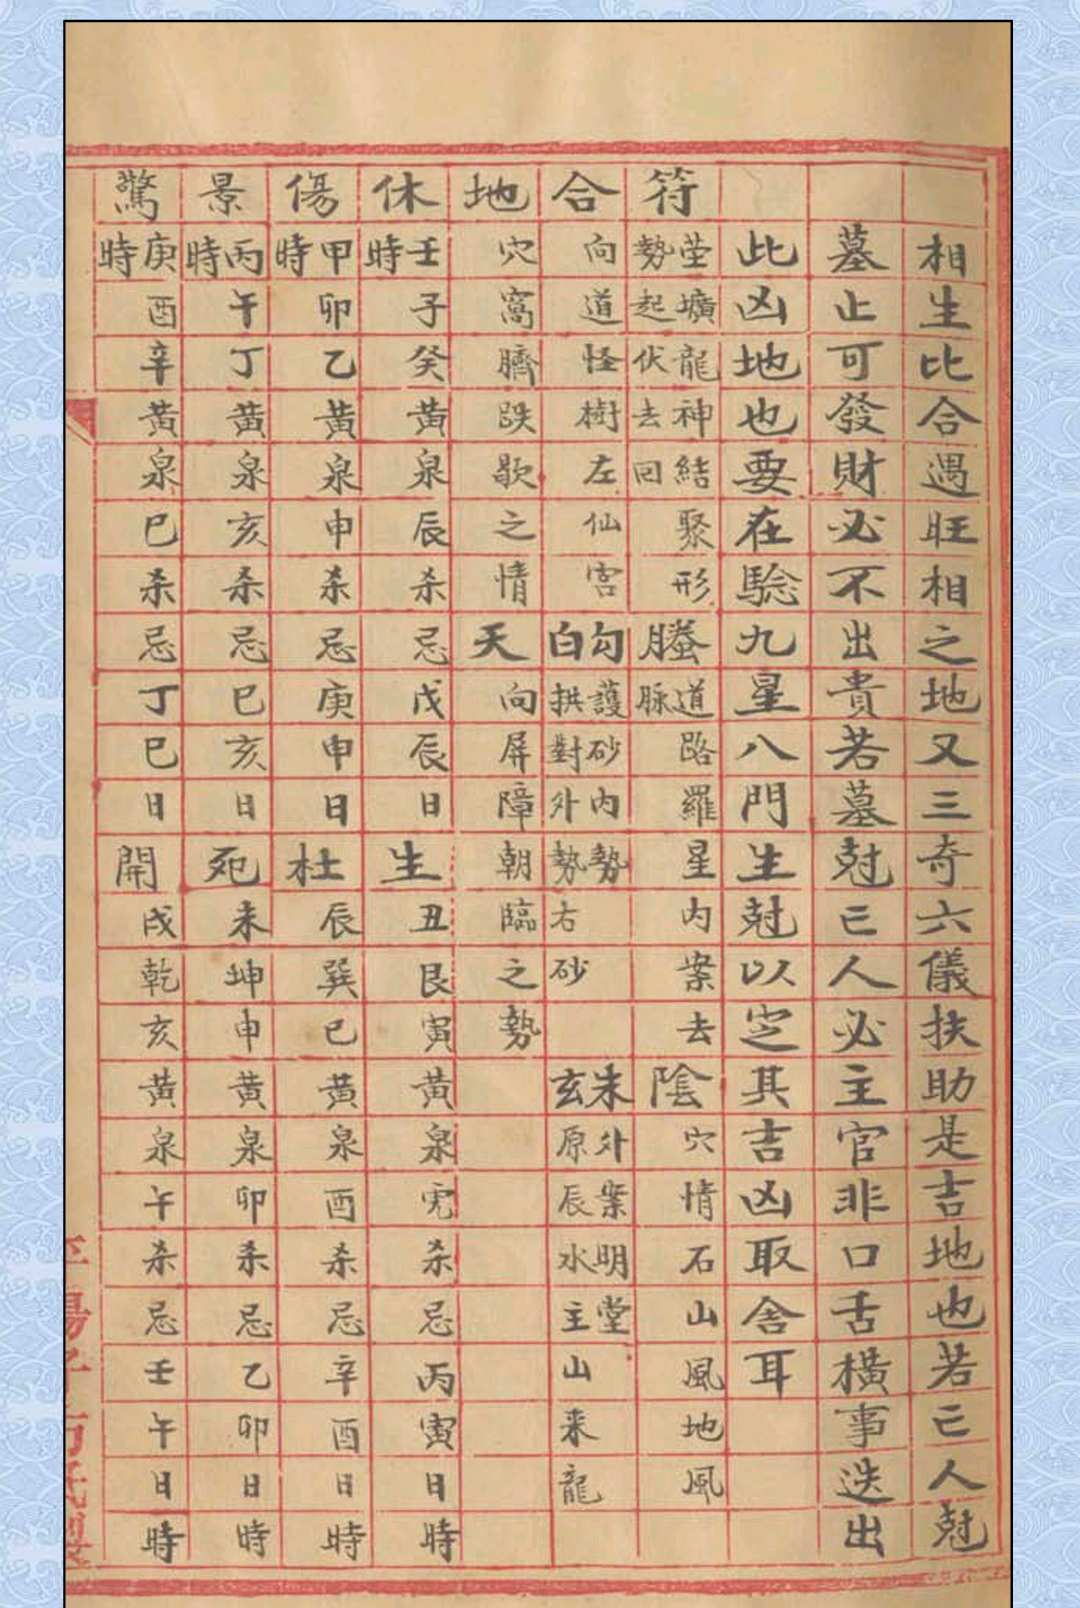 相生比合遇旺相之地又三奇六儀扶助是吉地也若亡人尅
墓止可發財必不出貴若墓尅亡人必主官非口舌橫事迭出
此凶地也要在騐九星八門生尅以定其吉凶取舍耳
符
塋壙龍神結聚形
勢起伏去回
螣
道路羅星内案去
脉
陰
穴情石山風地風
合
向道怪樹左仙宮
勾
護砂内勢
白
拱對外勢右砂
朱
外案明堂
玄
原辰水主山来龍
地
穴窩臍跌歇之情
天
向屏障朝臨之勢
休
壬子癸黃泉辰杀忌戊辰日
時
生
丑艮寅黃泉杀忌丙寅日時
傷
甲卯乙黃泉申杀忌庚申日
時
杜
辰巽巳黃泉酉杀忌辛酉日時
景
丙午丁黃泉亥杀忌巳亥日
時
死
未坤申黃泉卯杀忌乙卯日時
驚
庚酉辛黃泉巳杀忌丁巳日
時
開
戌乾亥黃泉午杀忌壬午日時